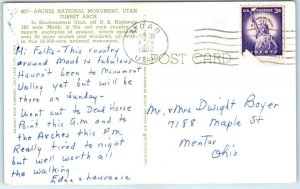 407—ARCHES NATIONAL MONUMENT, UTAH
TURRET ARCH
In Southeastern Utah, off U. S. Highway
160 near Moab, is the red rock country
superb examples of erosion, which
over 80 stone arches and windows, all
this 34,000-acre national monument.
Hi Folks - This country
around Moab is fabulous
Haven't been to Monument
Valley yet but will be
there on Sunday -
Went out to Dead Horse
Point this A.M. and to
the Arches this P.M.
Really tired to-night
but well worth all
the walking.
Edna & Laurance
MOAB
UTAH
3¢
POST CARD
Mr. & Mrs Dwight Boyer
7188 Maple St
Mentor
Ohio